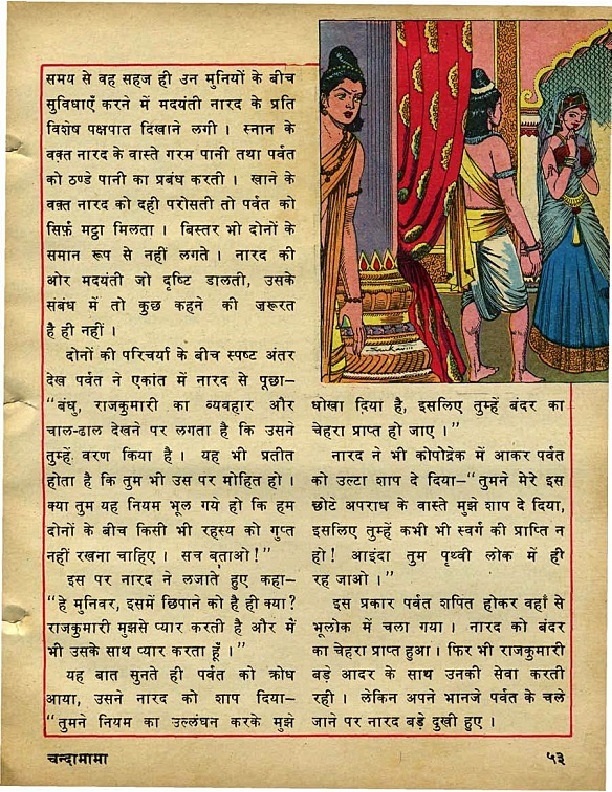 समय से वह सहज ही उन मुनियों के बीच
सुविधाएँ करने में मदयंती नारद के प्रति
विशेष पक्षपात दिखाने लगी । स्नान के
वक़्त नारद के वास्ते गरम पानी तथा पर्वत
को ठण्डे पानी का प्रबंध करती । खाने के
वक़्त नारद को दही परोसती तो पर्वत को
सिर्फ़ मट्ठा मिलता । बिस्तर भी दोनों के
समान रूप से नहीं लगते । नारद की
ओर मदयंती जो दृष्टि डालती, उसके
संबंध में तो कुछ कहने की जरूरत
है ही नहीं ।
दोनों की परिचर्या के बीच स्पष्ट अंतर
देख पर्वत ने एकांत में नारद से पूछा—
"बंधु, राजकुमारी का व्यवहार और
चाल-ढाल देखने पर लगता है कि उसने
तुम्हें वरण किया है । यह भी प्रतीत
होता है कि तुम भी उस पर मोहित हो ।
क्या तुम यह नियम भूल गये हो कि हम
दोनों के बीच किसी भी रहस्य को गुप्त
नहीं रखना चाहिए । सच बताओ !"
इस पर नारद ने लजाते हुए कहा—
"हे मुनिवर, इसमें छिपाने को है ही क्या?
राजकुमारी मुझसे प्यार करती है और मैं
भी उसके साथ प्यार करता हूँ ।"
यह बात सुनते ही पर्वत को क्रोध
आया, उसने नारद को शाप दिया—
"तुमने नियम का उल्लंघन करके मुझे
धोखा दिया है, इसलिए तुम्हें बंदर का
चेहरा प्राप्त हो जाए ।"
नारद ने भी कोपोद्रेक में आकर पर्वत
को उल्टा शाप दे दिया—"तुमने मेरे इस
छोटे अपराध के वास्ते मुझे शाप दे दिया,
इसलिए तुम्हें कभी भी स्वर्ग की प्राप्ति न
हो! आइंदा तुम पृथ्वी लोक में ही
रह जाओ ।"
इस प्रकार पर्वत शपित होकर वहाँ से
भूलोक में चला गया । नारद को बंदर
का चेहरा प्राप्त हुआ । फिर भी राजकुमारी
बड़े आदर के साथ उनकी सेवा करती
रही । लेकिन अपने भानजे पर्वत के चले
जाने पर नारद बड़े दुखी हुए ।
चन्दामामा
५३